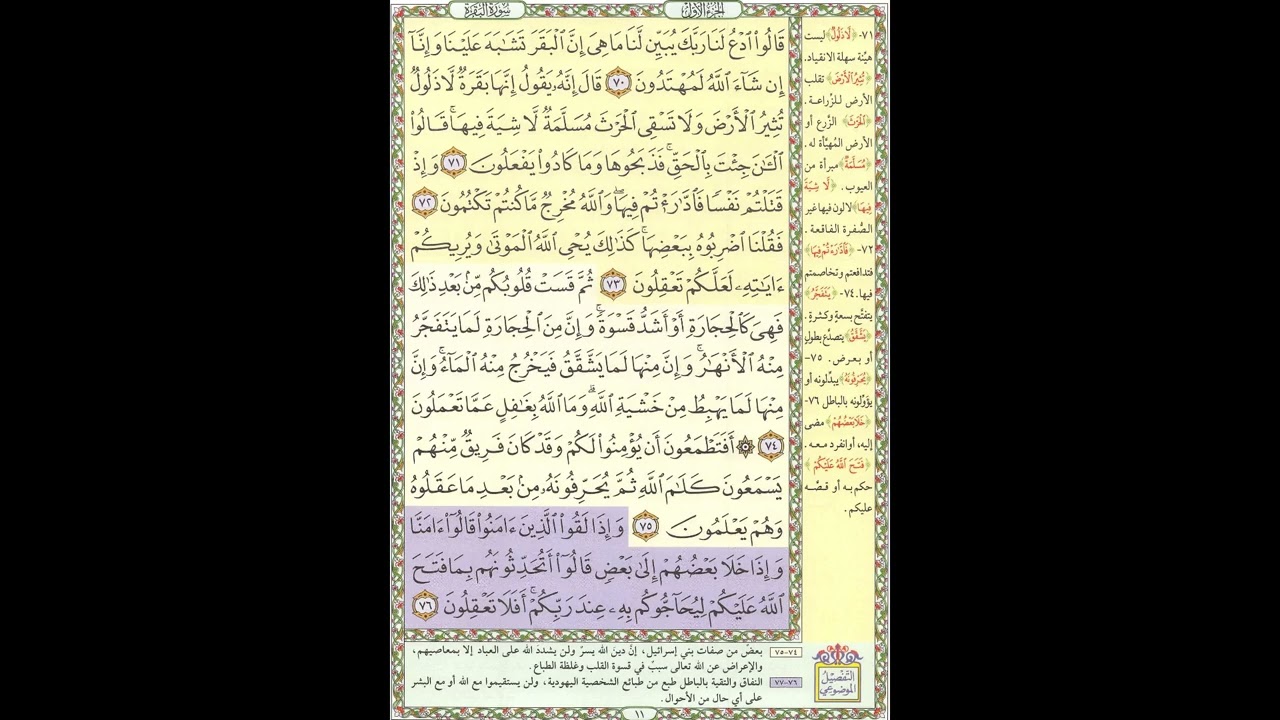 سُورَةُ البَقَرَةِ
الجُزْءُ الأَوَّلُ
قَالُوا۟ ٱدْعُ لَنَا رَبَّكَ يُبَيِّن لَّنَا مَا هِىَ إِنَّ ٱلْبَقَرَ تَشَٰبَهَ عَلَيْنَا وَإِنَّآ
إِن شَآءَ ٱللَّهُ لَمُهْتَدُونَ ٧٠ قَالَ إِنَّهُۥ يَقُولُ إِنَّهَا بَقَرَةٌ لَّا ذَلُولٌ
تُثِيرُ ٱلْأَرْضَ وَلَا تَسْقِى ٱلْحَرْثَ مُسَلَّمَةٌ لَّا شِيَةَ فِيهَا ۚ قَالُوا۟
ٱلْـَٰٔنَ جِئْتَ بِٱلْحَقِّ ۚ فَذَبَحُوهَا وَمَا كَادُوا۟ يَفْعَلُونَ ٧١ وَإِذْ
قَتَلْتُمْ نَفْسًا فَٱدَّٰرَْٰٔتُمْ فِيهَا ۖ وَٱللَّهُ مُخْرِجٌ مَّا كُنتُمْ تَكْتُمُونَ ٧٢
فَقُلْنَا ٱضْرِبُوهُ بِبَعْضِهَا ۚ كَذَٰلِكَ يُحْىِ ٱللَّهُ ٱلْمَوْتَىٰ وَيُرِيكُمْ
ءَايَٰتِهِۦ لَعَلَّكُمْ تَعْقِلُونَ ٧٣ ثُمَّ قَسَتْ قُلُوبُكُم مِّنۢ بَعْدِ ذَٰلِكَ
فَهِىَ كَٱلْحِجَارَةِ أَوْ أَشَدُّ قَسْوَةً ۚ وَإِنَّ مِنَ ٱلْحِجَارَةِ لَمَا يَتَفَجَّرُ
مِنْهُ ٱلْأَنْهَٰرُ ۚ وَإِنَّ مِنْهَا لَمَا يَشَّقَّقُ فَيَخْرُجُ مِنْهُ ٱلْمَآءُ ۚ وَإِنَّ
مِنْهَا لَمَا يَهْبِطُ مِنْ خَشْيَةِ ٱللَّهِ ۗ وَمَا ٱللَّهُ بِغَٰفِلٍ عَمَّا تَعْمَلُونَ
٧٤ ۞ أَفَتَطْمَعُونَ أَن يُؤْمِنُوا۟ لَكُمْ وَقَدْ كَانَ فَرِيقٌ مِّنْهُمْ
يَسْمَعُونَ كَلَٰمَ ٱللَّهِ ثُمَّ يُحَرِّفُونَهُۥ مِنۢ بَعْدِ مَا عَقَلُوهُ
وَهُمْ يَعْلَمُونَ ٧٥ وَإِذَا لَقُوا۟ ٱلَّذِينَ ءَامَنُوا۟ قَالُوٓا۟ ءَامَنَّا
وَإِذَا خَلَا بَعْضُهُمْ إِلَىٰ بَعْضٍ قَالُوٓا۟ أَتُحَدِّثُونَهُم بِمَا فَتَحَ
ٱللَّهُ عَلَيْكُمْ لِيُحَآجُّوكُم بِهِۦ عِندَ رَبِّكُمْ ۚ أَفَلَا تَعْقِلُونَ ٧٦
٧١- ﴿لَّا ذَلُولٌ﴾ ليست
هيّنة سهلة الانقياد.
﴿تُثِيرُ ٱلْأَرْضَ﴾ تقلب
الأرض للزّراعة.
﴿ٱلْحَرْثَ﴾ الزّرع أو
الأرض المُهيَّأة له.
﴿مُسَلَّمَةٌ﴾ مبرأة من
العيوب. ﴿لَّا شِيَةَ
فِيهَا﴾ لا لون فيها غير
الصُّفرة الفاقعة.
٧٢- ﴿فَٱدَّٰرَْٰٔتُمْ فِيهَا﴾
فتدافعتم وتخاصمتم
فيها. ٧٤- ﴿يَتَفَجَّرُ﴾
يتفتَّح بسعةٍ وكثرةٍ.
﴿يَشَّقَّقُ﴾ يتصدَّع بطول
أو بعرض. ٧٥-
﴿يُحَرِّفُونَهُ﴾ يبدِّلونه أو
يؤوِّلونه بالباطل ٧٦-
﴿خَلَا بَعْضُهُمْ﴾ مضى
إليه، أو انفرد معه.
﴿فَتَحَ ٱللَّهُ عَلَيْكُمْ﴾
حكم به أو قصَّه
عليكم.
٧٤-٧٥ بعضٌ من صفات بني إسرائيل، إنَّ دينَ الله يسرٌ ولن يشددَ الله على العباد إلا بمعاصيهم،
والإعراض عن الله تعالى سببٌ في قسوة القلب وغلظة الطباع.
٧٦-٧٧ النفاق والتقية بالباطل طبع من طبائع الشخصية اليهودية، ولن يستقيموا مع الله أو مع البشر
على أي حال من الأحوال.
التَّفْصِيلُ
المَوْضُوعِيُّ
١١